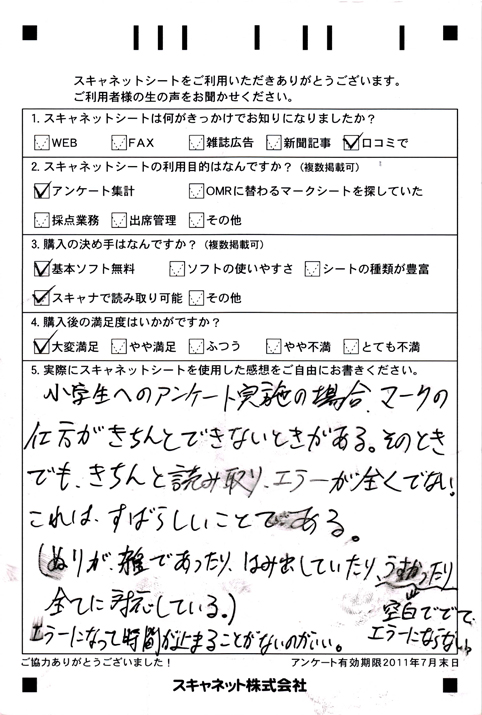 スキャネットシートをご利用いただきありがとうございます。
ご利用者様の生の声をお聞かせください。
1. スキャネットシートは何がきっかけでお知りになりましたか？
WEB FAX 雑誌広告 新聞記事 口コミで
2. スキャネットシートの利用目的はなんですか？（複数掲載可）
アンケート集計 OMRに替わるマークシートを探していた
採点業務 出席管理 その他
3. 購入の決め手はなんですか？（複数掲載可）
基本ソフト無料 ソフトの使いやすさ シートの種類が豊富
スキャナで読み取り可能 その他
4. 購入後の満足度はいかがですか？
大変満足 やや満足 ふつう やや不満 とても不満
5. 実際にスキャネットシートを使用した感想をご自由にお書きください。
小学生へのアンケート実施の場合、マークの
仕方がきちんとできないときがある。そのとき
でも、きちんと読み取り、エラーが全くでない！
これは、すばらしいことである。
（ぬりが、雑であったり、はみ出していたり、うすかったり
全てに対応している。）
空白ででて、
エラーにならない。
エラーになって時間が止まることがないのがいい。
ご協力ありがとうございました！ アンケート有効期限2011年7月末日
スキャネット株式会社